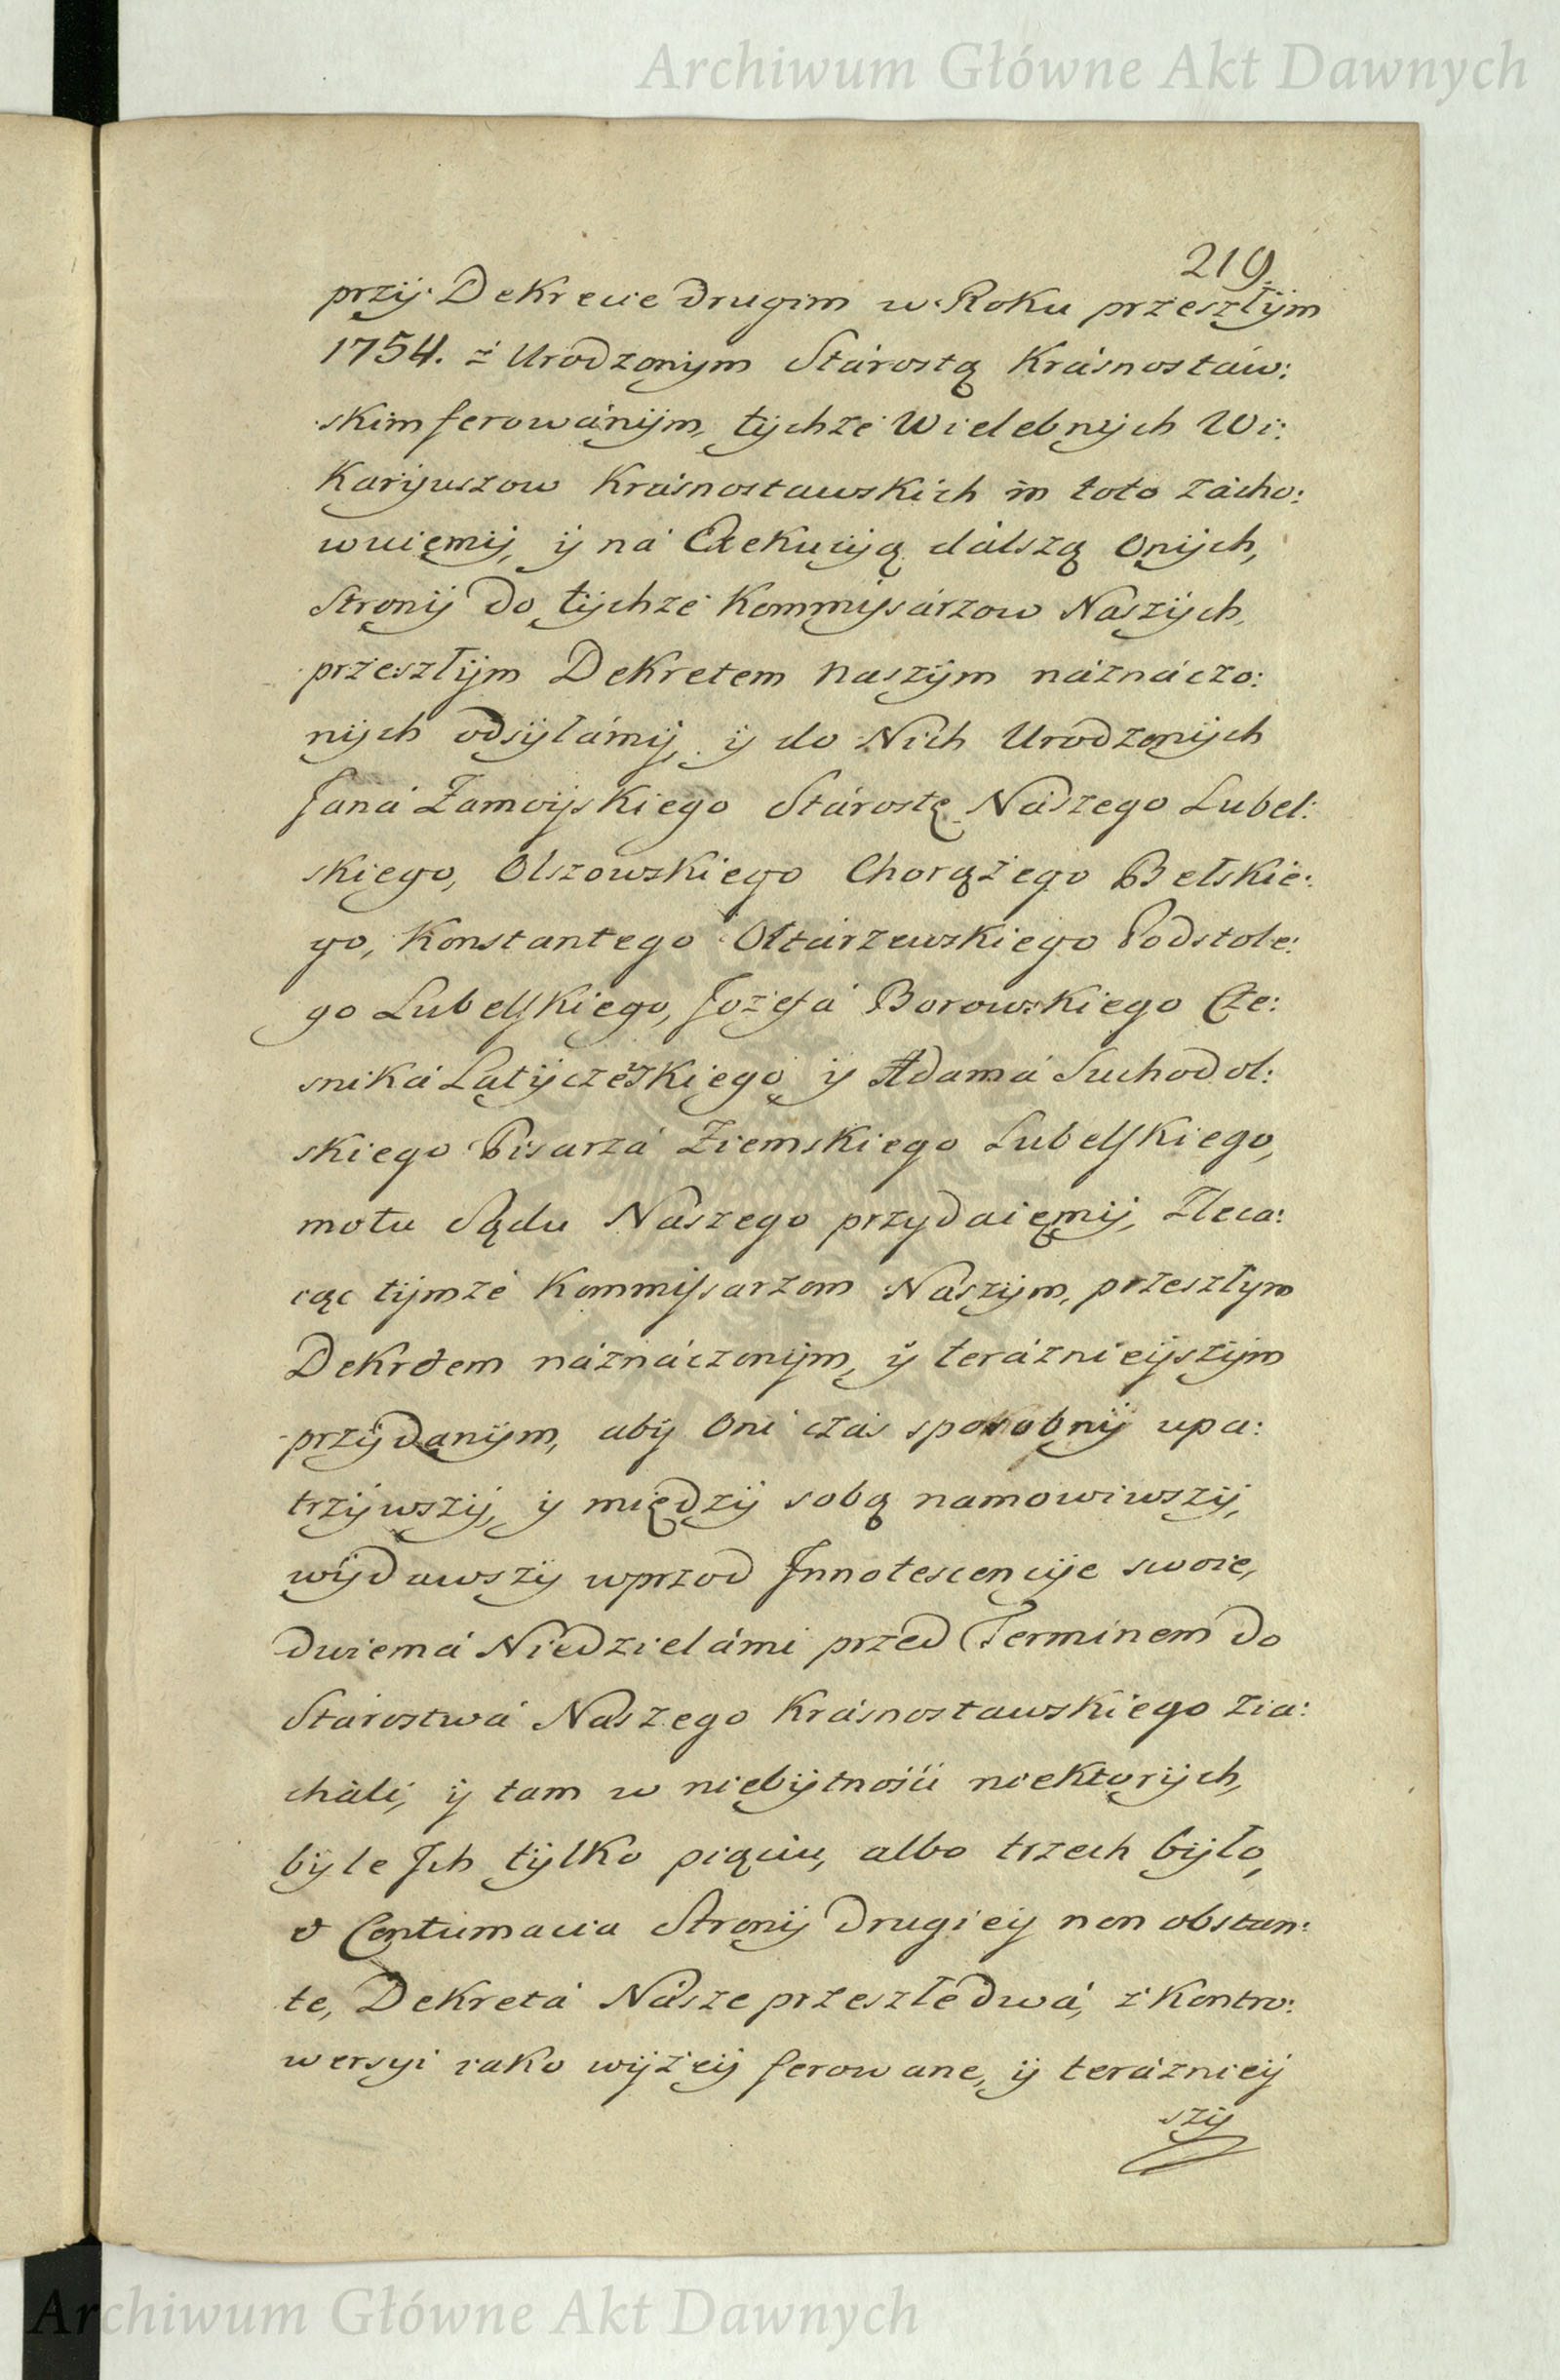 Archiwum Główne Akt Dawnych
219.
przÿ Dekrecie drugim w Roku przeszłÿm
1754. z Urodzonym Stárostą Krásnostáw:
skim ferowánÿm, tÿchże Wielebnÿch Wi:
karÿuszow Krásnostawskich in toto zácho:
wuięmÿ, ÿ ná Exekucÿą dálszą Onÿch,
Stronÿ do tÿchże Kommissárzow Naszÿch,
przeszłÿm Dekretem naszÿm náználczo:
nÿch odsÿłámÿ, ÿ do Nich Urodzonÿch
Janá Zamoÿskiego Stárostę Nászego Lubel:
skiego, Olszowskiego Chorążego Bełskie:
go, Konstantego Ołtárzewskiego Podstole:
go Lubelskiego, Jozefá Borowskiego Cze:
sniká Latÿczewskiego ÿ Adamá Suchodol:
skiego Pisarzá Ziemskiego Lubelskiego,
motu Sądu Nászego przydaięmÿ, Zleca:
iąc tÿmże Kommissarzom Nászÿm, przeszłym
Dekretem náználczonÿm, ÿ teráznieÿszÿm
przÿdanÿm, abÿ Oni czás sposobnÿ upa:
trzÿwszÿ, ÿ międzÿ sobą namowiwszÿ,
wÿdawszÿ wprzod Innotescencÿe swoie,
dwiemá Niedzielámi przed Terminem do
Stárostwá Nászego Krásnostawskiego zia:
cháli, ÿ tam w niebÿtności niektorÿch,
bÿle Jch tÿlko pięciu, albo trzech bÿło,
et Contumacia Stronÿ drugieÿ non obstan:
te, Dekretá Násze przeszłe dwá, z Kontro:
wersyi iako wÿżeÿ ferowane, ÿ terázniéÿ
szÿ
Archiwum Główne Akt Dawnych